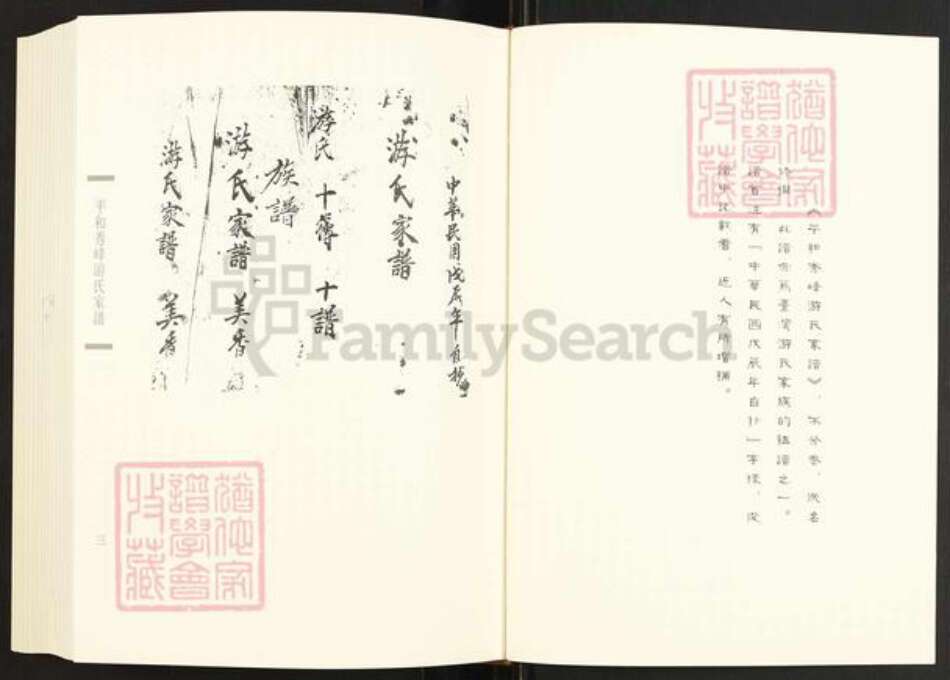 《平和秀峰游氏家譜》，不分卷，佚名
修撰。
此譜當為臺灣游氏家族的祖譜之一。
譜首頁有「中華民國戊辰年自抄」字樣，從
譜中記載看，近人有所增補。
中華民國戊辰年自抄
游氏家譜
游氏 十簿 十譜
族譜
游氏家譜 美香
游氏家譜 美香
平和秀峰游氏家譜
三
猶他家
譜學會
收藏
猶他家
譜學會
收藏
FamilySearch